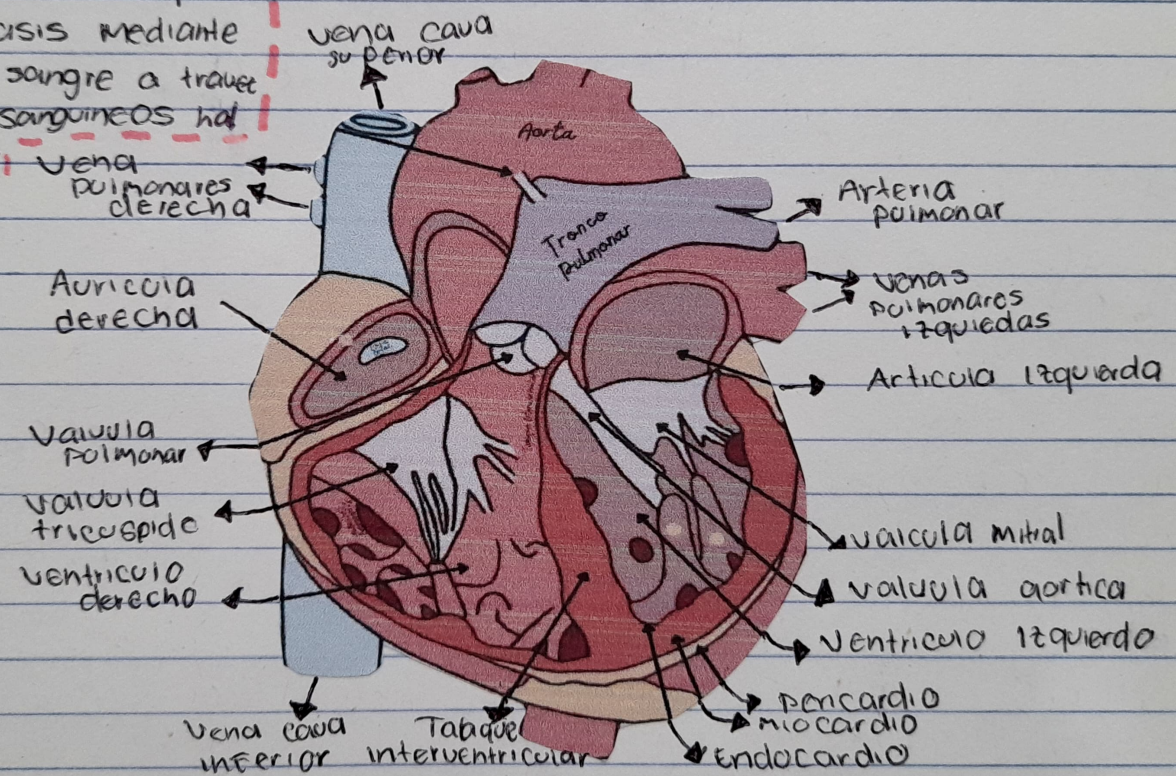 asis mediante
sangre a travez
sanguineos hal
vena cava
superior
vena
pulmonares
derecha
Aorta
Tronco
pulmonar
Arteria
pulmonar
venas
pulmonares
izquiedas
Auricula
derecha
Articula izquierda
valvula
polmonar
valvula
tricuspide
ventriculo
derecho
valcula mitral
valvula aortica
ventriculo izquierdo
pericardio
miocardio
Endocardio
vena cava
inferior
Tabique
interventricular